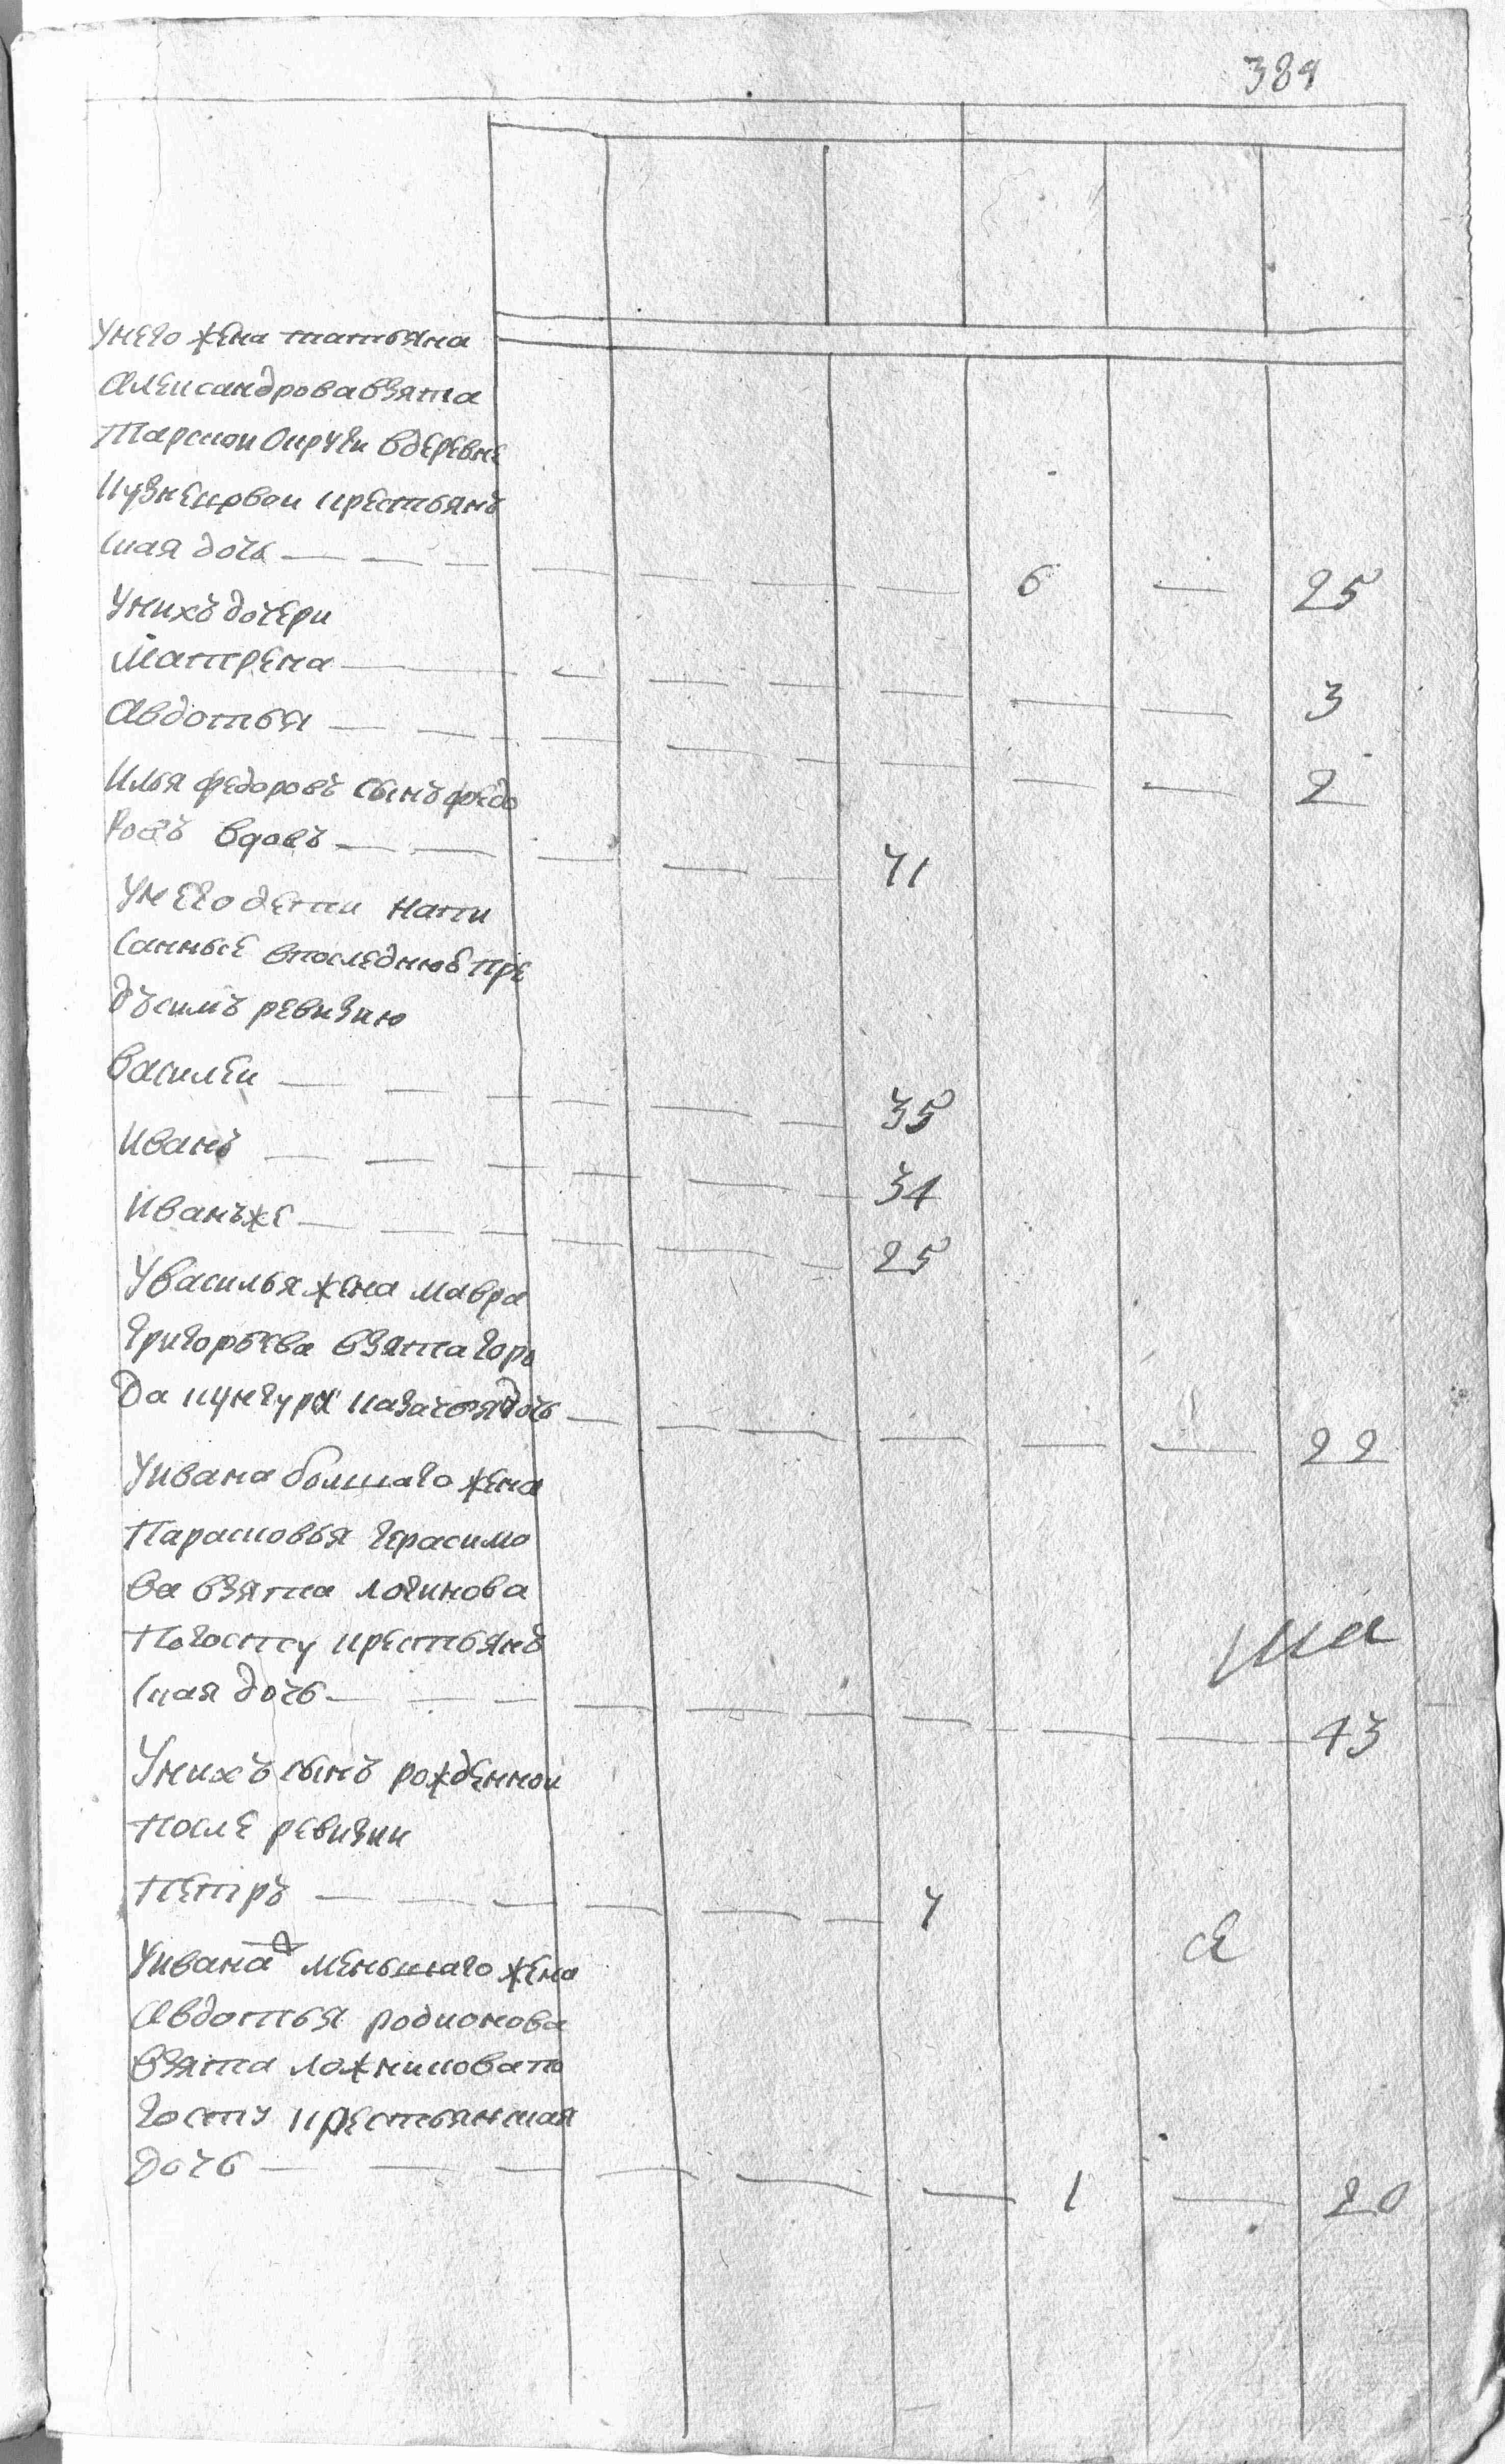 389
У него жена татьяна
Александрова взята
тарской округи в деревне
кузнецовой крестьянъ
ская дочь — — — 6 — 25
У нихъ дочери
Матрена — — — 3
Авдотья — — — 2
Илья федоровъ сынъ федо
ровъ вдовъ — — — 71
У него дети напи
санные в последнюю пре
дъ симъ ревизию
Василей — — — 35
Иванъ — — — 34
Иванъ же — — — 25
У василья жена мавра
григорьева взята горо
да кунгура казачья дочь — — — 22
У ивана большаго жена
Парасковья герасимо
ва взята логинова
погосту крестьянъ
ская дочь — — — 43
У нихъ сынъ рожденной
после ревизии
Петръ — — — 4
У ивана меньшаго жена
Авдотья родионова
взята ложникова по
госту крестьянская
дочь — — — 1 — 20